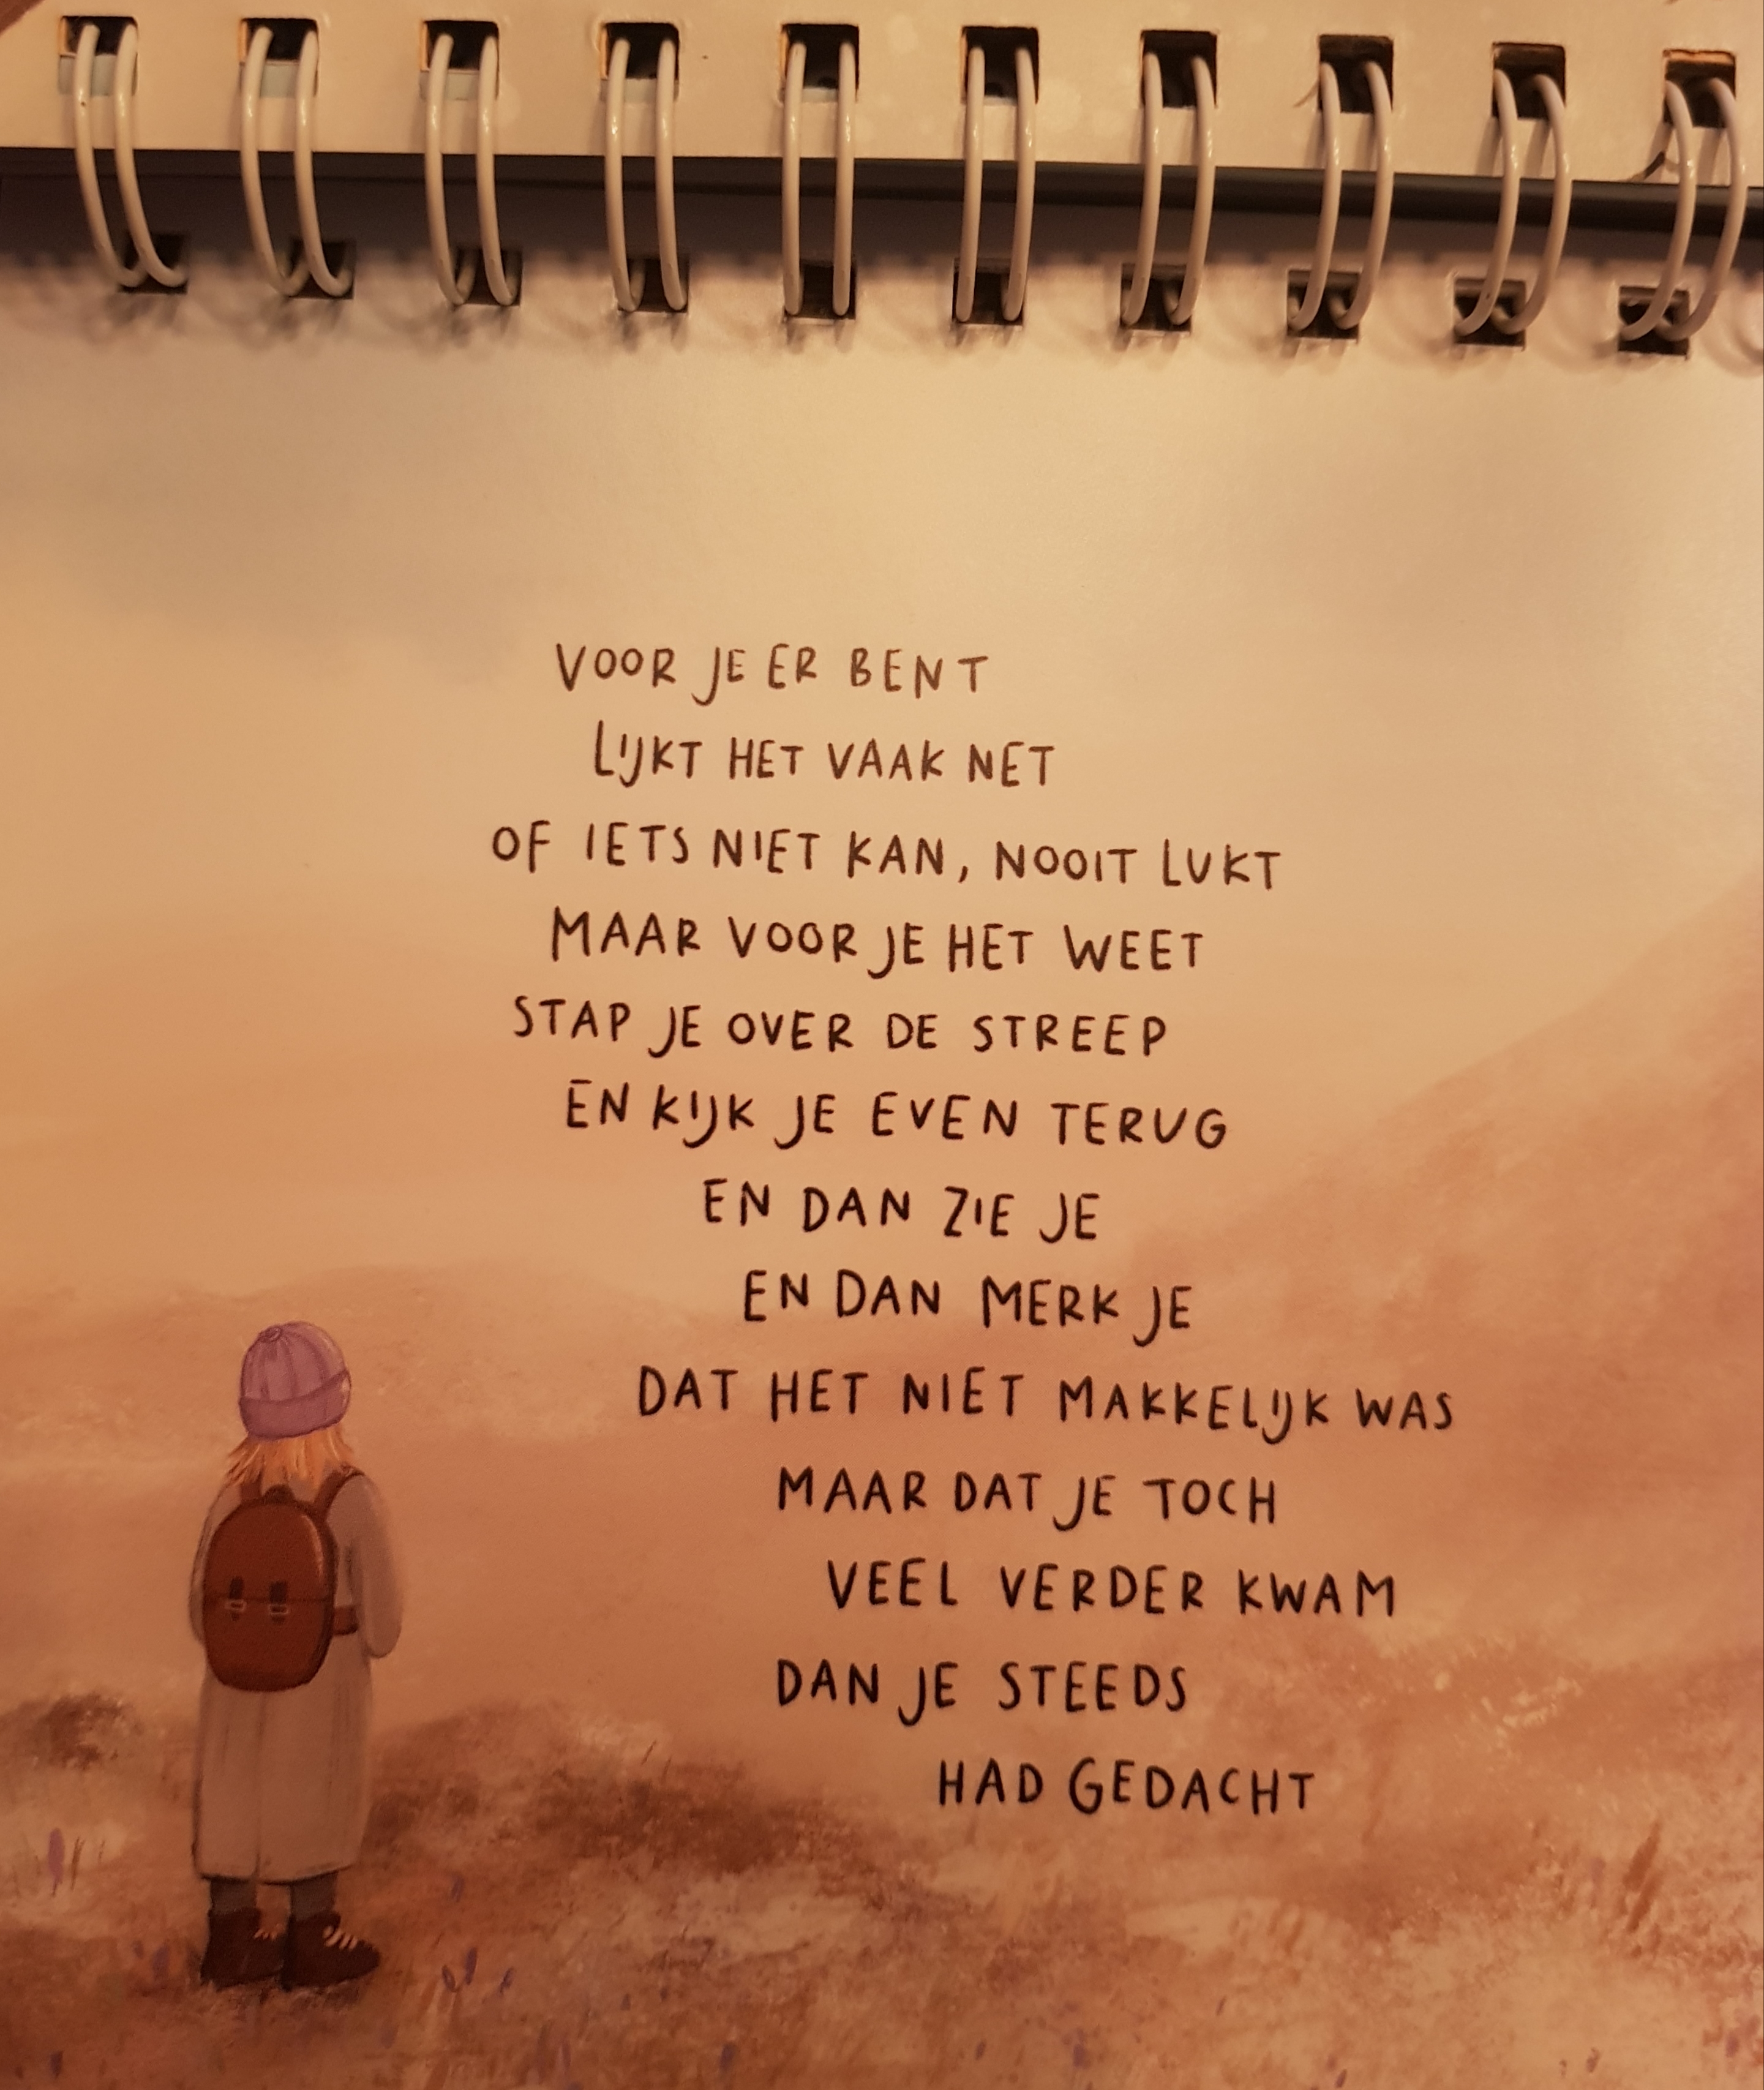 VOOR JE ER BENT
LIJKT HET VAAK NET
OF IETS NIET KAN, NOOIT LUKT
MAAR VOOR JE HET WEET
STAP JE OVER DE STREEP
EN KIJK JE EVEN TERUG
EN DAN ZIE JE
EN DAN MERK JE
DAT HET NIET MAKKELIJK WAS
MAAR DAT JE TOCH
VEEL VERDER KWAM
DAN JE STEEDS
HAD GEDACHT